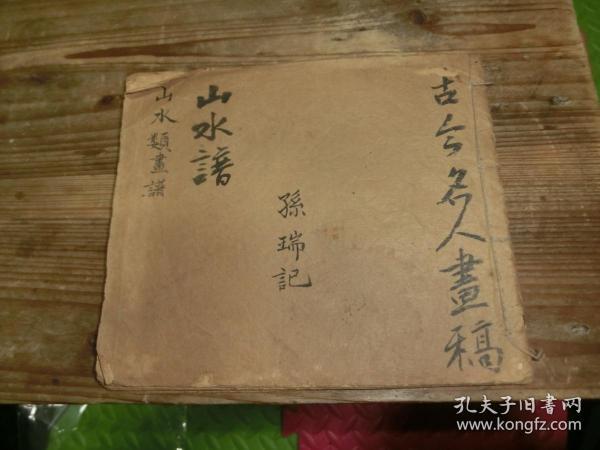 古今名人畫稿
孫瑞記
山水譜
山水類畫譜
孔夫子旧书网
www.kongfz.com